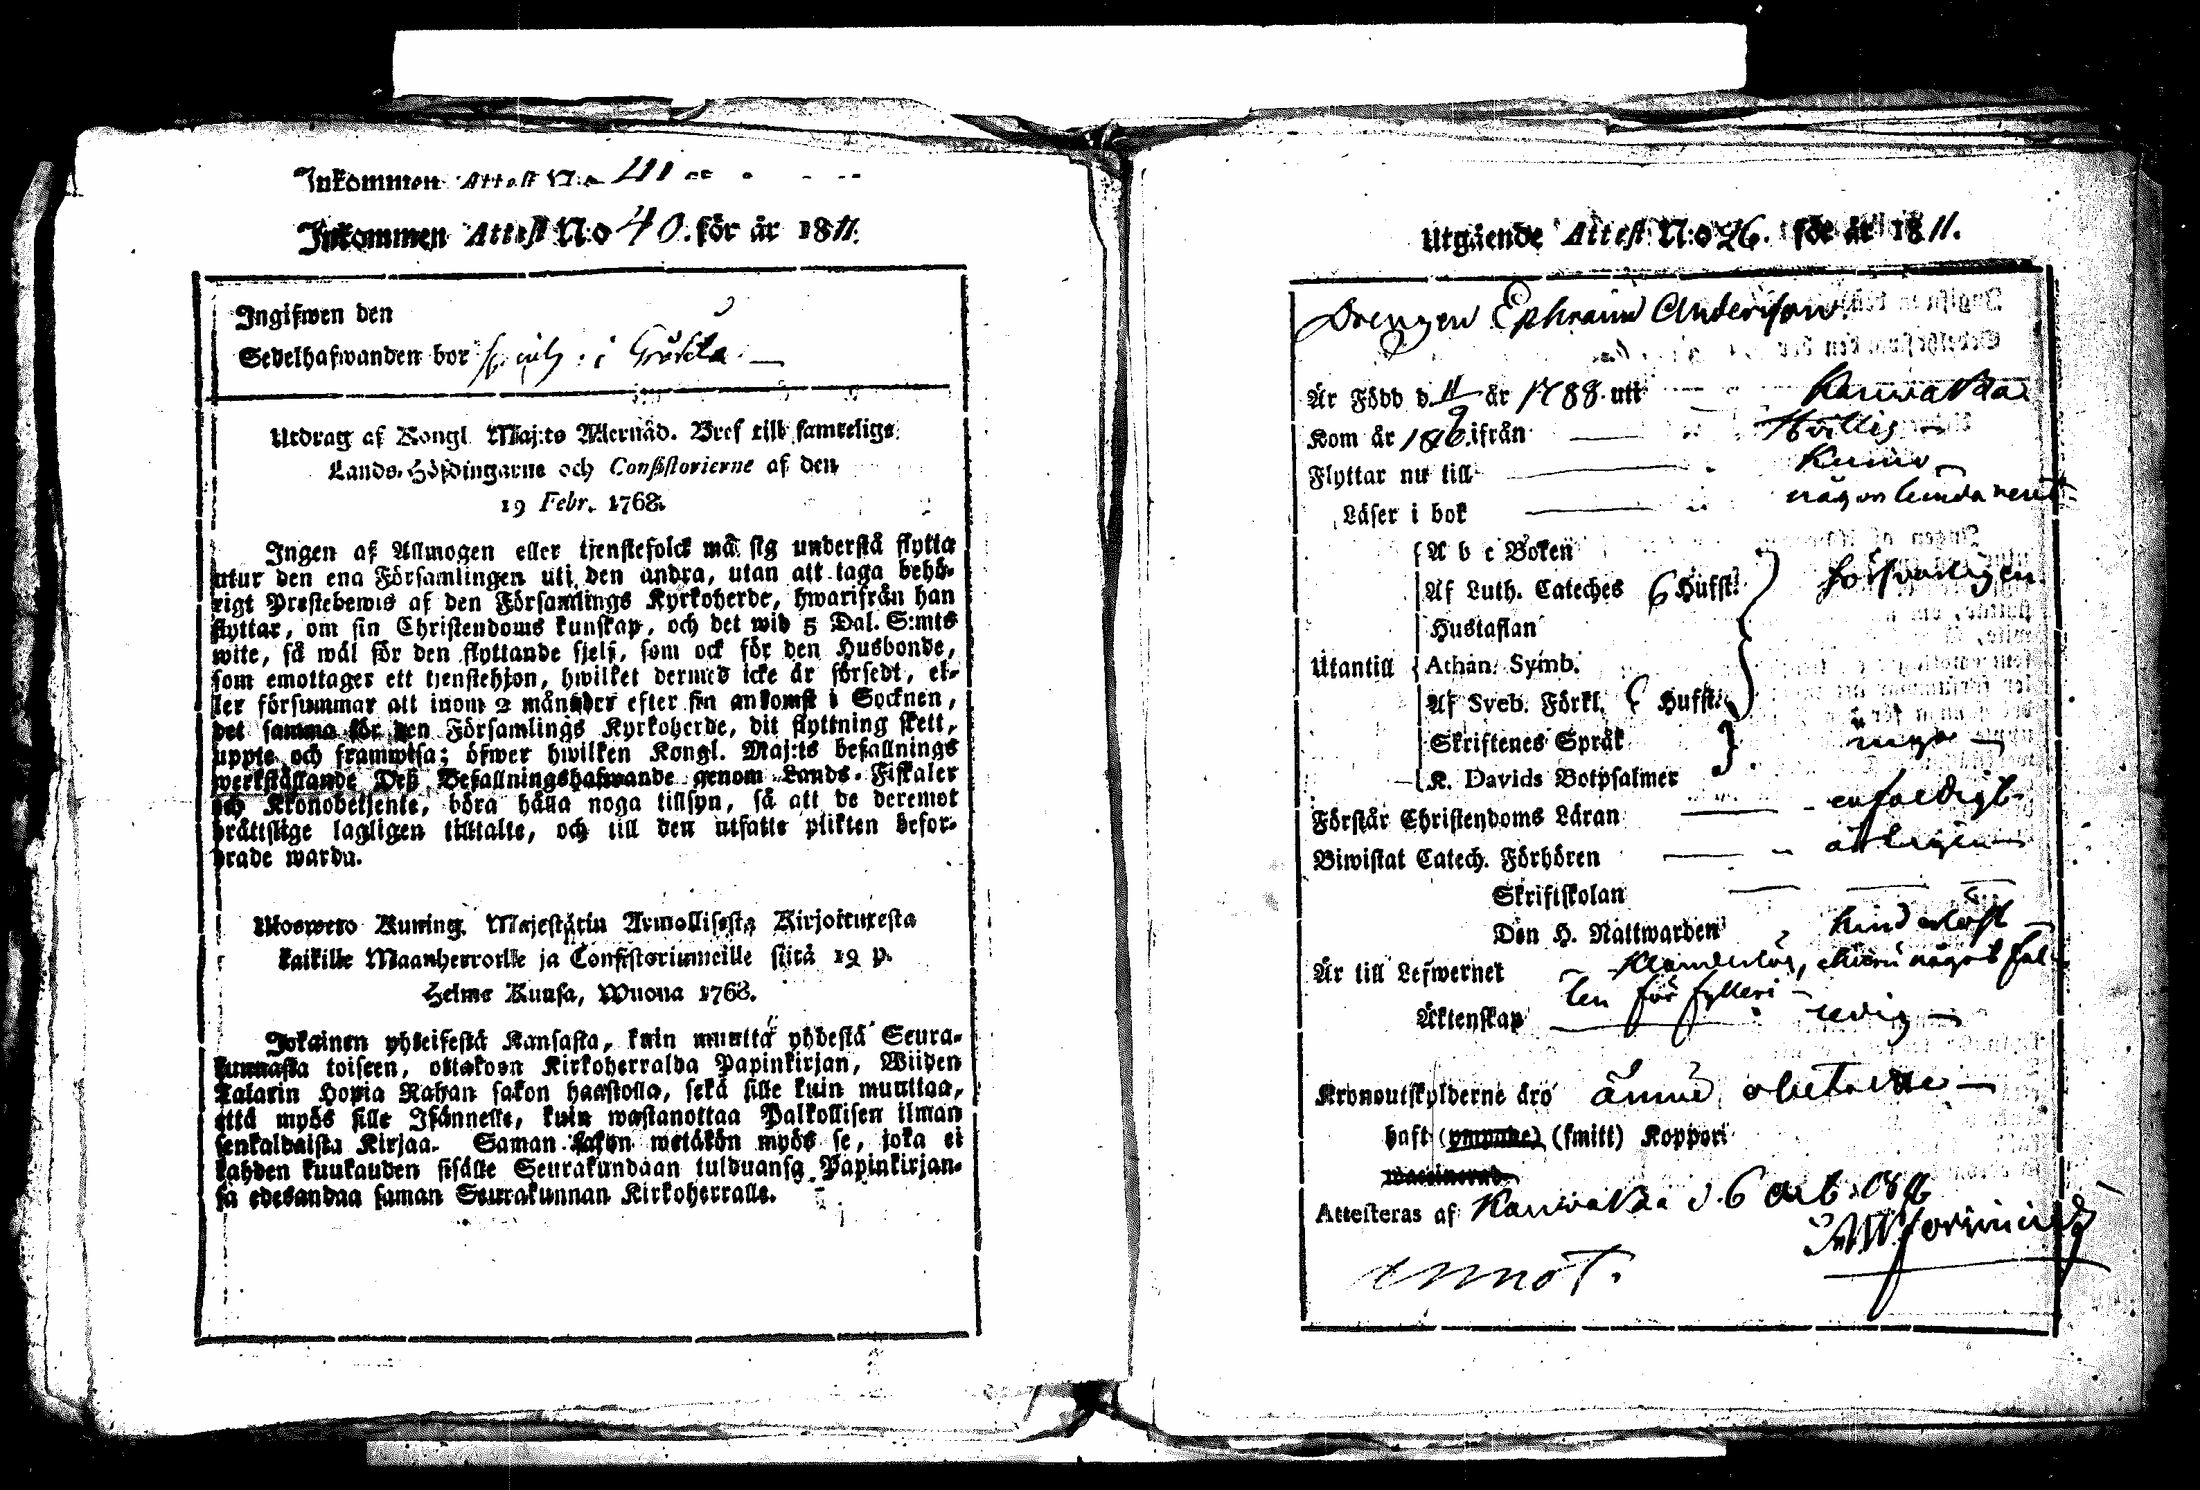 Inkommen Attest N:o 41
Inkommen Attest N:o 40. för år 1811.
Ingifwen den
Sedelhafwanden bor i
Utdrag af Kongl. Maj:ts Allernåd. Bref till samtelige
Lands-Höfdingarne och Consistorierne af den
19 Febr. 1768.
Ingen af Allmogen eller tjenstefolck må sig understå flytta
utur den ena Församlingen uti den andra, utan att taga behö-
rigt Prestebewis af den Församlings Kyrkoherde, hwarifrån han
flyttar, om sin Christendoms kunskap, och det wid 5 Dal. S:mts
wite, så wäl för den flyttande sjelf, som ock för den Husbonde,
som emottager ett tjenstehjon, hwilket dermed icke är försedt, el-
ler försummar att inom 2 månader efter sin ankomst i Socknen,
det samma för den Församlings Kyrkoherde, dit flyttning skett,
uppte och framwisa; öfwer hwilken Kongl. Maj:ts befallnings
werkställande Deß Befallningshafwande genom Lands-Fiskaler
och Kronobetjente, böra hålla noga tillsyn, så att de deremot
brättslige lagligen tilltalte, och till den utfatte plikten befor-
drade warda.
Ulosweto Kuning. Majestätin Armollisesta Kirjoituxesta
kaikille Maanherroille ja Consistoriumeille siitä 19 p.
Helme Kuusa, Wuona 1768.
Jokainen yhteisestä Kansasta, kuin muuttä yhdestä Seura-
kunnasta toiseen, ottakoon Kirkoherralda Papinkirjan, Wiiden
Talarin Hopia Rahan sakon haastolla, sekä sille kuin muuttaa,
että myös sille Isännelle, kuin wastanottaa Palkollisen ilman
senkaldaista Kirjaa. Saman sakon wetäkön myös se, joka ei
kahden kuukauden sisälle Seurakundaan tulduansa Papinkirjan-
sa edesandaa saman Seurakunnan Kirkoherralle.
Utgående Attest N:o 26. för år 1811.
Drengen Ephraim Andersson
Är Född d. 11/9 år 1788. uti Kauwatza
Kom år ifrån
Flyttar nu till Kumo
Läser i bok någon lunda rent
A b c Boken
Af Luth. Cateches 6 Hufst: försvarligen
Hustaflan
Utantill Athan. Symb.
Af Sveb. Förkl. 6 Hufst:
Skriftenes Språk inga
K. Davids Botpsalmer
Förstår Christendoms Läran enfaldigt
Biwistat Catech. Förhören
Skriftskolan
Den H. Nattwarden hinderlöst
Är till Lefwernet
för fylleri
Äktenskap ledig
Kronoutskylderne äro ännu obetalte
haft (ympade) (smitt) Koppor
waccinerad
Attesteras af Kauwatza d. 6 1811